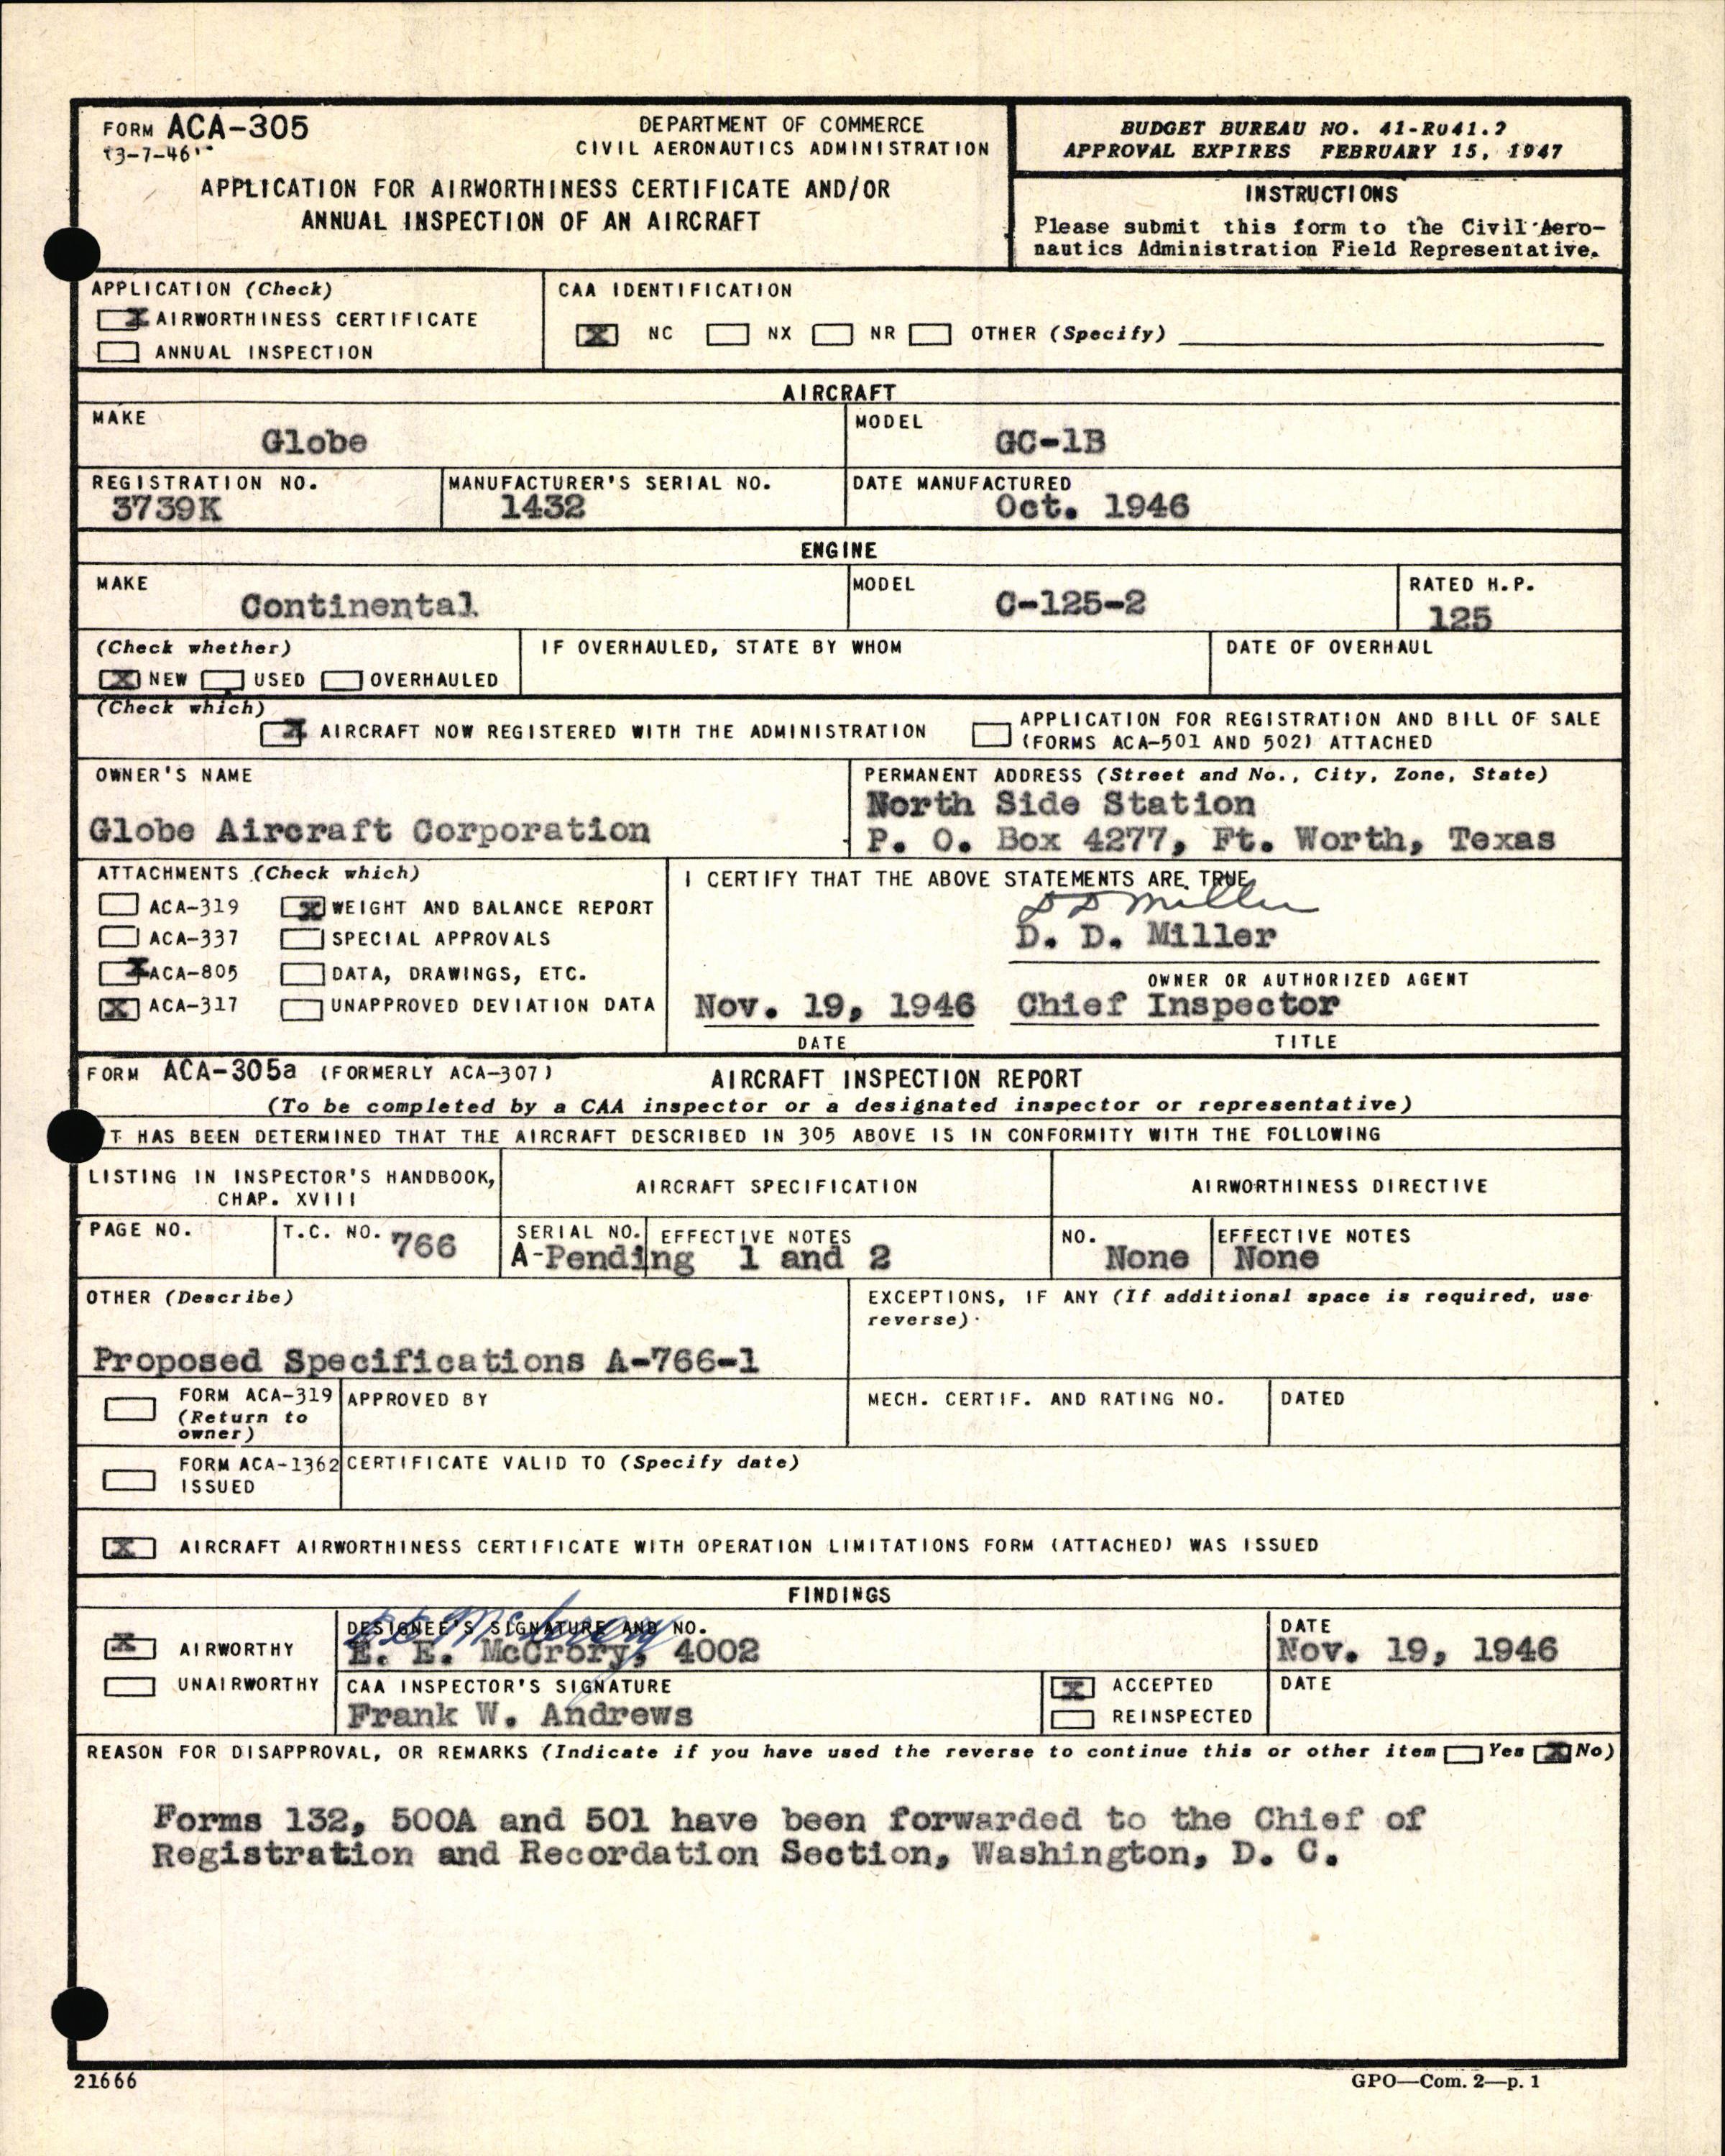 FORM ACA-305
(3-7-46)
DEPARTMENT OF COMMERCE
CIVIL AERONAUTICS ADMINISTRATION
APPLICATION FOR AIRWORTHINESS CERTIFICATE AND/OR
ANNUAL INSPECTION OF AN AIRCRAFT
BUDGET BUREAU NO. 41-R041.2
APPROVAL EXPIRES FEBRUARY 15, 1947
INSTRUCTIONS
Please submit this form to the Civil Aero-
nautics Administration Field Representative.
APPLICATION (Check)
X AIRWORTHINESS CERTIFICATE
ANNUAL INSPECTION
CAA IDENTIFICATION
X NC NX NR OTHER (Specify)
AIRCRAFT
MAKE
Globe
MODEL
GC-1B
REGISTRATION NO.
3739K
MANUFACTURER'S SERIAL NO.
1432
DATE MANUFACTURED
Oct. 1946
ENGINE
MAKE
Continental
MODEL
C-125-2
RATED H.P.
125
(Check whether)
X NEW USED OVERHAULED
IF OVERHAULED, STATE BY WHOM
DATE OF OVERHAUL
(Check which)
X AIRCRAFT NOW REGISTERED WITH THE ADMINISTRATION
APPLICATION FOR REGISTRATION AND BILL OF SALE
(FORMS ACA-501 AND 502) ATTACHED
OWNER'S NAME
Globe Aircraft Corporation
PERMANENT ADDRESS (Street and No., City, Zone, State)
North Side Station
P. O. Box 4277, Ft. Worth, Texas
ATTACHMENTS (Check which)
ACA-319 X WEIGHT AND BALANCE REPORT
ACA-337 SPECIAL APPROVALS
X ACA-805 DATA, DRAWINGS, ETC.
X ACA-317 UNAPPROVED DEVIATION DATA
I CERTIFY THAT THE ABOVE STATEMENTS ARE TRUE
D D Miller
D. D. Miller
OWNER OR AUTHORIZED AGENT
Nov. 19, 1946 Chief Inspector
DATE TITLE
FORM ACA-305a (FORMERLY ACA-307) AIRCRAFT INSPECTION REPORT
(To be completed by a CAA inspector or a designated inspector or representative)
T HAS BEEN DETERMINED THAT THE AIRCRAFT DESCRIBED IN 305 ABOVE IS IN CONFORMITY WITH THE FOLLOWING
LISTING IN INSPECTOR'S HANDBOOK,
CHAP. XVIII
AIRCRAFT SPECIFICATION
AIRWORTHINESS DIRECTIVE
PAGE NO.
T.C. NO. 766
SERIAL NO.
A-Pending
EFFECTIVE NOTES
1 and 2
NO.
None
EFFECTIVE NOTES
None
OTHER (Describe)
Proposed Specifications A-766-1
EXCEPTIONS, IF ANY (If additional space is required, use
reverse)
FORM ACA-319
(Return to
owner)
APPROVED BY
MECH. CERTIF. AND RATING NO.
DATED
FORM ACA-1362
ISSUED
CERTIFICATE VALID TO (Specify date)
X AIRCRAFT AIRWORTHINESS CERTIFICATE WITH OPERATION LIMITATIONS FORM (ATTACHED) WAS ISSUED
FINDINGS
X AIRWORTHY
UNAIRWORTHY
DESIGNEE'S SIGNATURE AND NO.
E E McCrory
E. E. McCrory, 4002
DATE
Nov. 19, 1946
CAA INSPECTOR'S SIGNATURE
Frank W. Andrews
X ACCEPTED
REINSPECTED
DATE
REASON FOR DISAPPROVAL, OR REMARKS (Indicate if you have used the reverse to continue this or other item Yes X No)
Forms 132, 500A and 501 have been forwarded to the Chief of
Registration and Recordation Section, Washington, D. C.
21666
GPO—Com. 2—p. 1